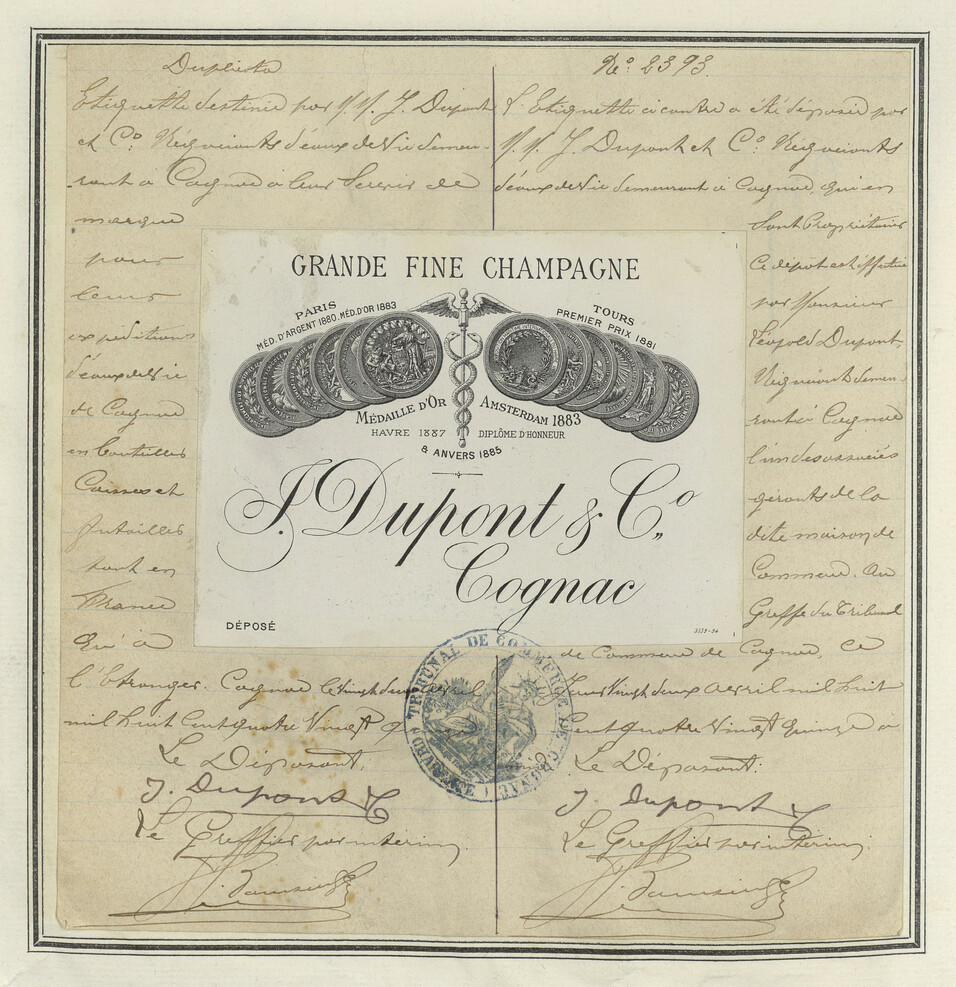 Duplicata
Etiquette destinée par M.M. J. Dupont
et Co. Négociants d'eaux de Vie demeu-
rant à Cognac à leur Servir de
marque
pour
leurs
expéditions
d'eaux de Vie
de Cognac
en bouteilles
Caisses et
futailles
tant en
France
qu'à
l'étranger. Cognac le vingt deux avril
mil huit Cent quatre Vingt
Le Déposant,
J. Dupont & Co
Le Greffier par interim
No. 2393.
L'Etiquette ci contre a été déposée par
M.M. J. Dupont et Co. Négociants
d'eaux de Vie demeurant à Cognac, qui en
sont Propriétaires
Ce dépot est effectué
par Monsieur
Léopold Dupont,
Négociant demeu-
rant à Cognac
l'un des associés
gérants de la
dite maison de
Commerce. Au
Greffe du Tribunal
de Commerce de Cognac, Ce
Jour vingt deux avril mil huit
Cent quatre Vingt Quinze
Le Déposant:
J. Dupont & Co
Le Greffier par interim.
GRANDE FINE CHAMPAGNE
PARIS
MÉD. D'ARGENT 1880. MÉD. D'OR 1883
TOURS
PREMIER PRIX 1881
MÉDAILLE D'OR AMSTERDAM 1883
HAVRE 1887 DIPLÔME D'HONNEUR
& ANVERS 1885
J. Dupont & Co.,
Cognac
DÉPOSÉ
TRIBUNAL DE COMMERCE DE COGNAC (CHARENTE)